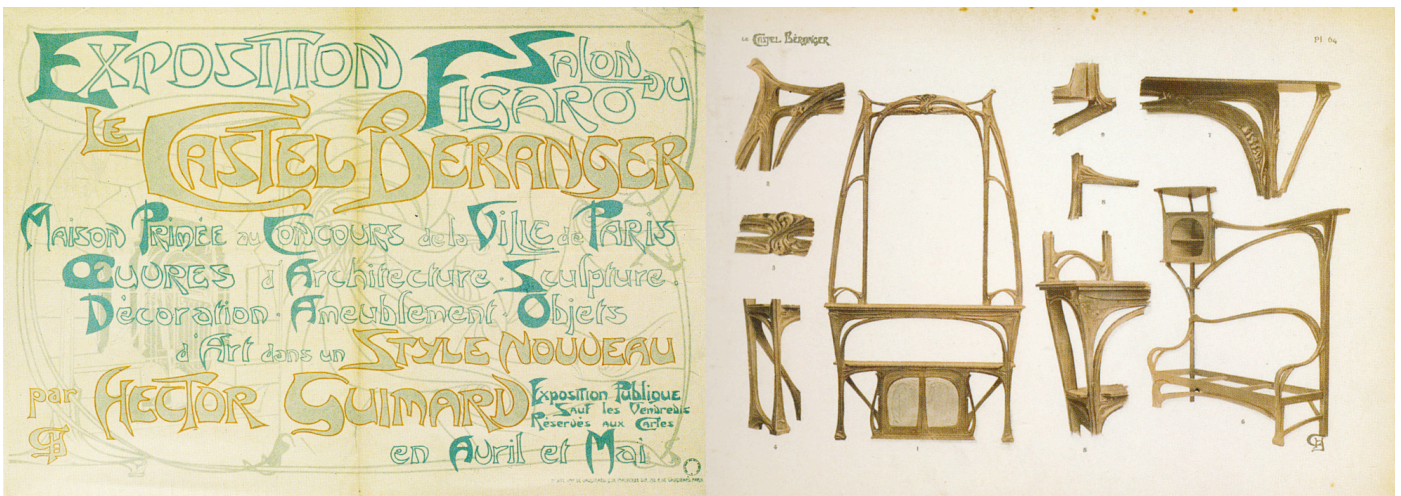 EXPOSITION SALON DU FIGARO
LE CASTEL BERANGER
MAISON PRIMÉE au CONCOURS de la VILLE de PARIS
ŒUVRES d'Architecture · Sculpture ·
Décoration · Ameublement · Objets
d'Art dans un STYLE NOUVEAU
par HECTOR GUIMARD
Exposition Publique
Sauf les Vendredis
Réservés aux Cartes
en Avril et Mai
LE CASTEL BÉRANGER
Pl. 64
2
9
7
3
4
1